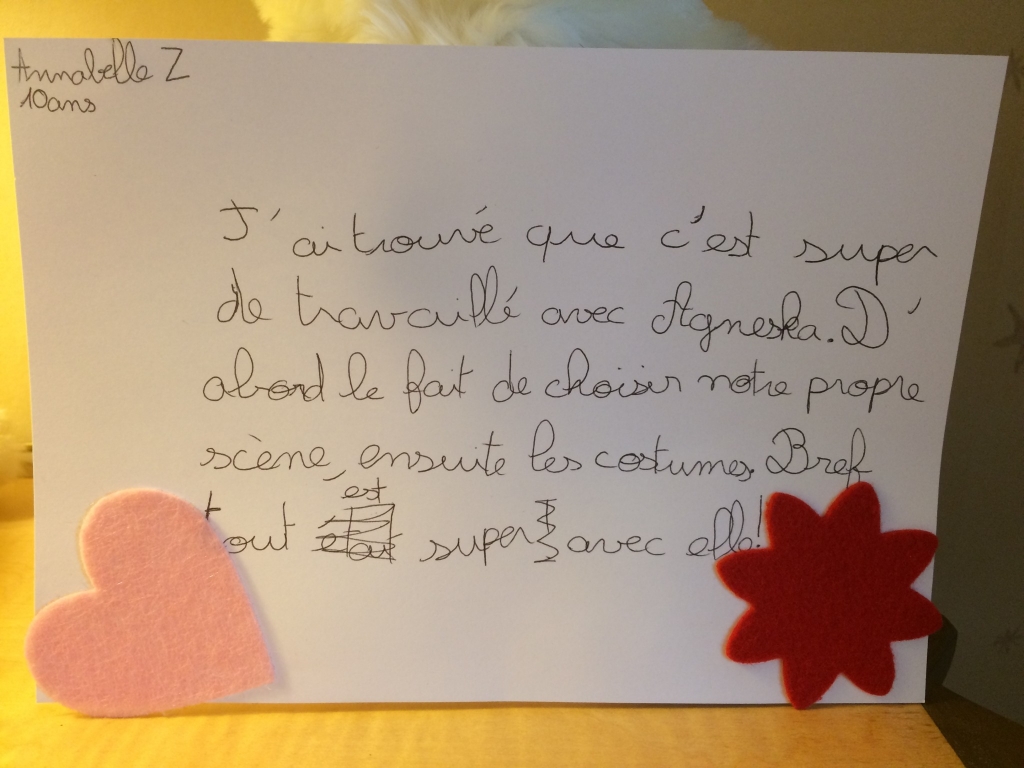 Annabelle Z
10ans
J'ai trouvé que c'est super
de travaillé avec Agneska. D'
abord le fait de choisir notre propre
scène, ensuite les costumes. Bref
est
tout super avec elle!